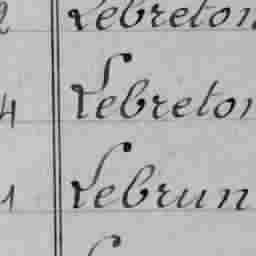 2 Lebreton
4 Lebreton
1 Lebrun